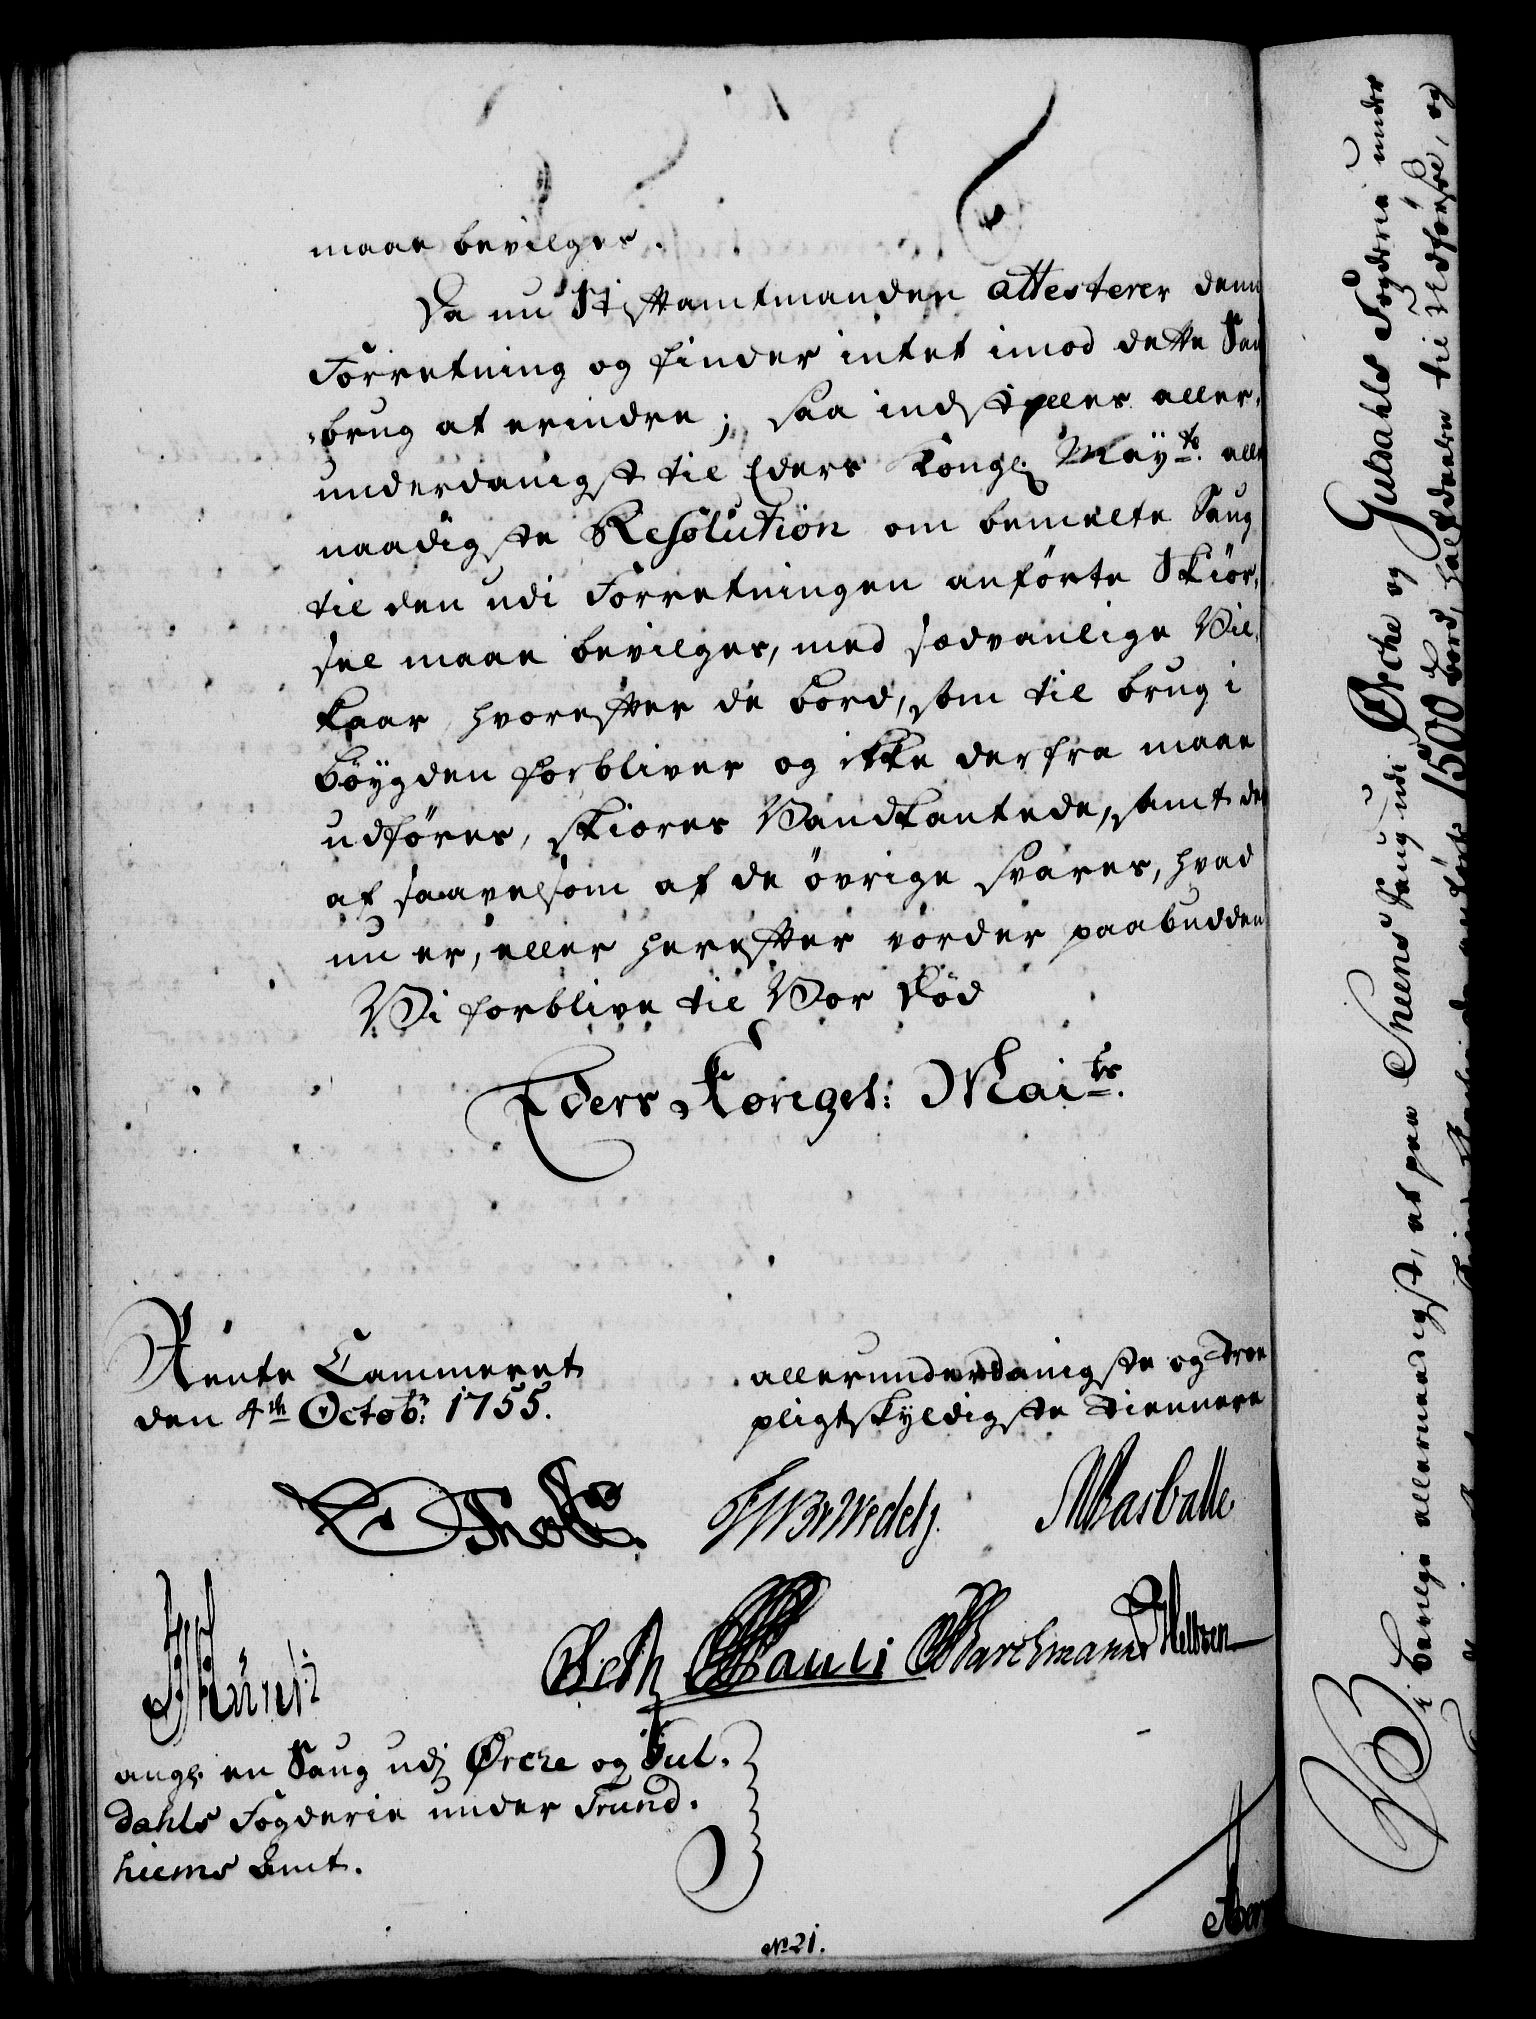 maae bevilges.
Da nu Stiftamtmanden attesterer denn
Forretning og finder intet imod dette Sau
brug at erindre; saa indstilles aller-
underdanigst til Eders Kongl. Mayts. aller
naadigste Resolution om bemelte Saug
til den udi Forretningen anførte Skiør-
sel maae bevilges, med sædvanlige Vil-
kaar, hvorefter de Bord, som til brug i
Bøygden forbliver og ikke derfra maae
udføres, skiæres Vandkantede, samt der
af saavelsom af de øvrige svares, hvad
nu er, eller herefter vorder paabudden
Vi forblive til Vor Død
Eders Kongel: Maits.
Rente Cammeret
den 4th Octobr: 1755.
allerunderdanigste og troe
pligtskyldigste Tiennere
Holst
Wedel
Masballe
Beth Pauli Barchmann
angl. en Saug udi Ørche og Gul-
dahls Fogderie under Trund-
hiems Amt.
No 21.
Vi bevilge allernaadigst, at paa Skeens Saug udi Ørche og Guldahls Fogderie under
1500 Bord, til Udførsel, og